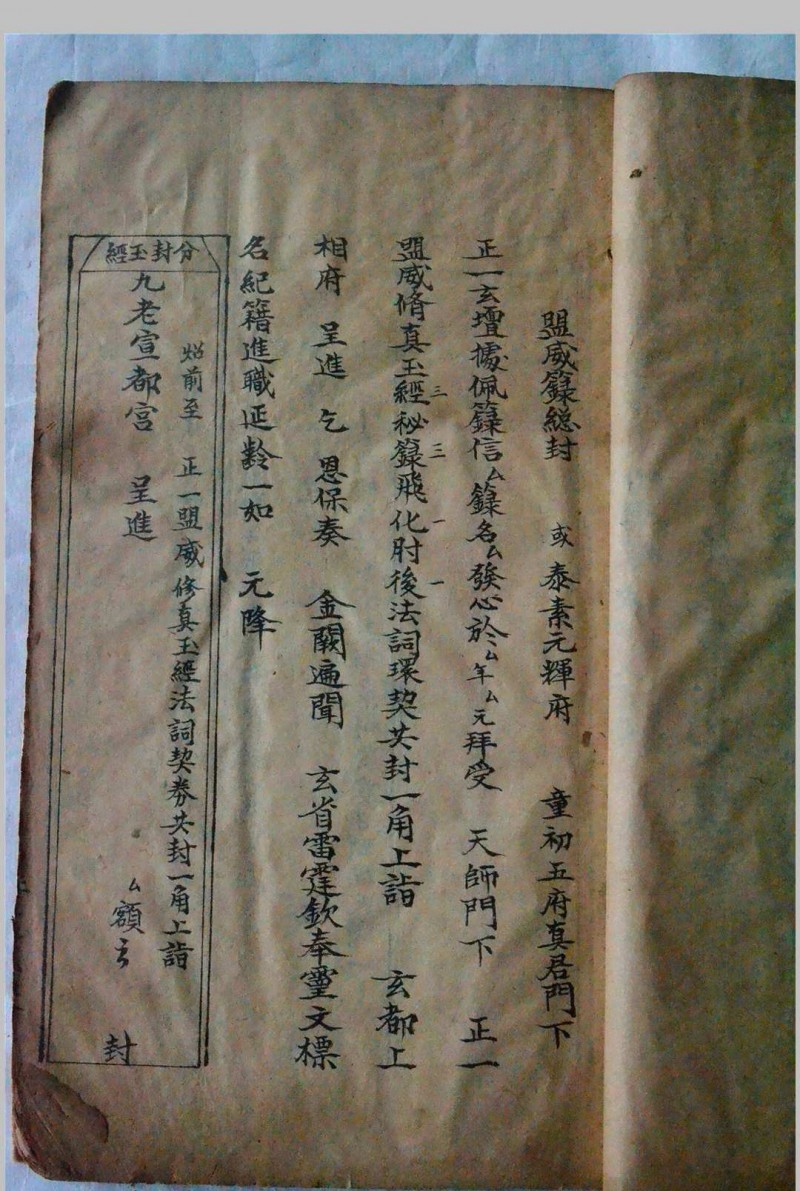 盟威籙總封　或　泰素元輝府　童初五府真君門下
正一玄壇據佩籙信厶籙名厶發心於厶年厶元拜受　天師門下　正一
盟威脩真玉經三秘籙三飛化一肘後一法詞環契共封一角上詣　玄都上
相府　呈進　乞　恩保奏　金闕遍聞　玄省雷霆欽奉靈文標
名紀籍進職延齡一如　元降
分封玉經
前至　正一盟威修真玉經法詞契券共封一角上詣
九老宣都宮　呈進　厶額　封